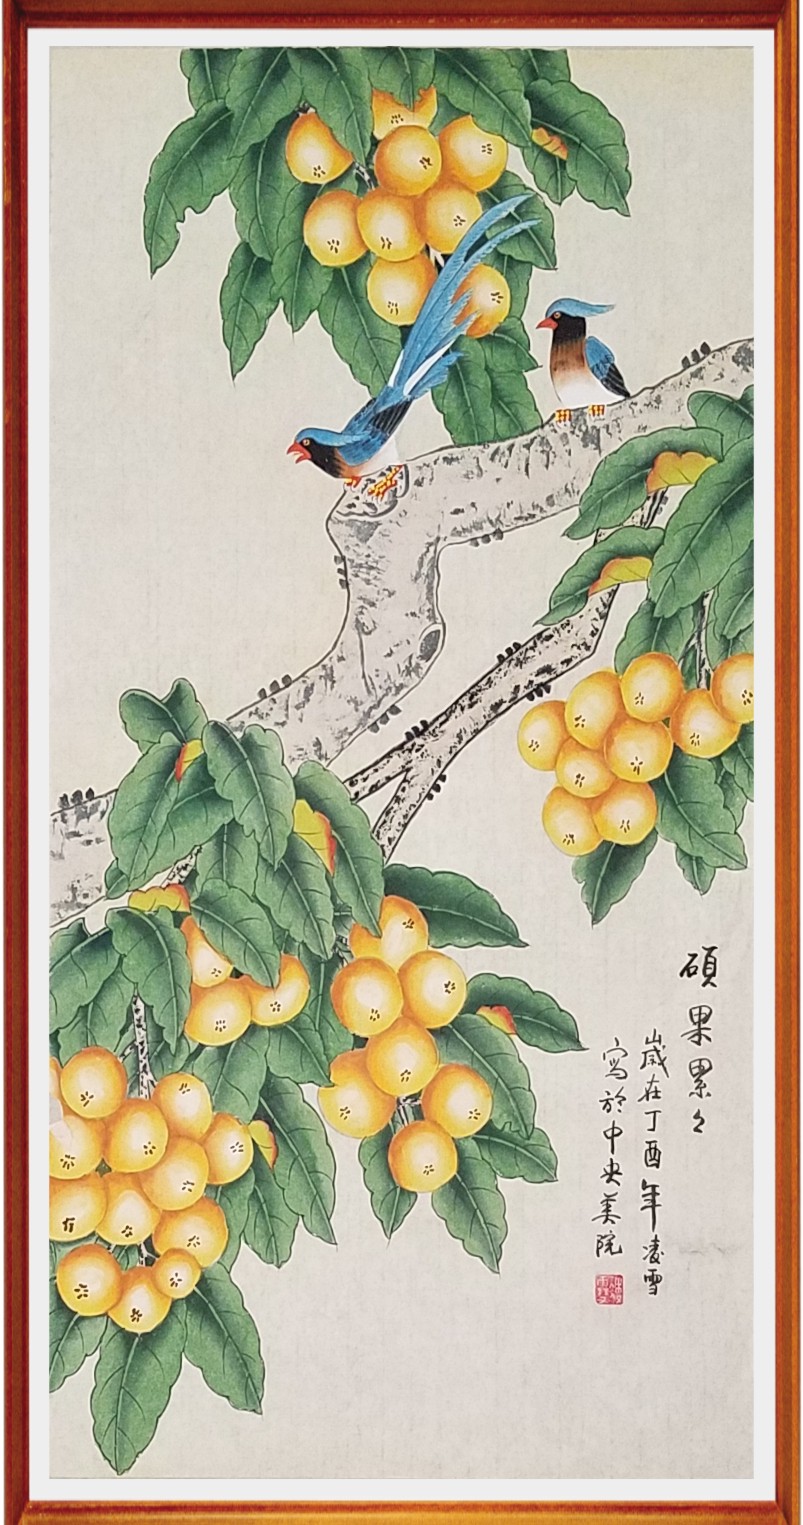 碩果累々
歲在丁酉年凌雪
寫於中央美院